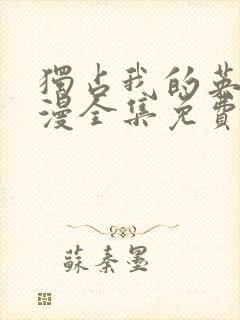 獨占我的英
漫全集免費
蘇秦墨